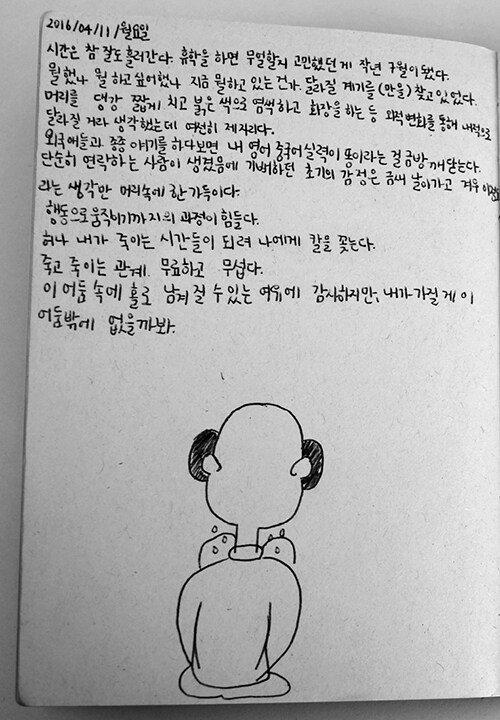 2016/04/11/월요일
시간은 참 잘도 흘러간다. 휴학을 하면 무얼할지 고민했던 게 작년 7월이었다.
뭘했나 뭘 하고 싶어했나 지금 뭘하고 있는건가. 달라질 계기를 (만을) 찾고 있었다.
머리를 댕강 짧게 치고 붉은 색으로 염색하고 화장을 하는 등 외적변화를 통해 내적으로
달라질 거라 생각했는데 여전히 제자리다.
외국애들과 종종 얘기를 하다보면 내 영어 중국어 실력이 똥이라는 걸 금방 깨닫는다.
단순히 연락하는 사람이 생겼음에 기뻐하던 초기의 감정은 금새 날아가고 겨우 이정도
라는 생각만 머리속에 한가득이다.
행동으로 움직이기까지의 과정이 힘들다.
허나 내가 죽이는 시간들이 되려 나에게 칼을 꽂는다.
죽고 죽이는 관계. 무료하고 무섭다.
이 어둠 속에 홀로 남겨질 수 있는 여유에 감사하지만, 내가 가질 게 이
어둠밖에 없을까봐.